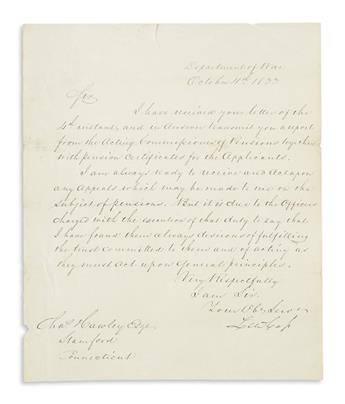 Department of War
October 11th 1833
Sir,
I have received your letter of the
4th instant, and in answer transmit you a report
from the Acting Commissioner of Pensions together
with pension Certificates for the Applicants.
I am always ready to receive and act upon
any Appeals which may be made to me on the
subject of pensions. But it is due to the Officers
charged with the execution of that duty to say that
I have found them always desirous of fulfilling
the trust committed to them and of acting as
they must act upon general principles.
Very Respectfully
I am Sir
Your Ob. Serv
Lew Cass
Chas Hawley Esqr
Stamford
Connecticut